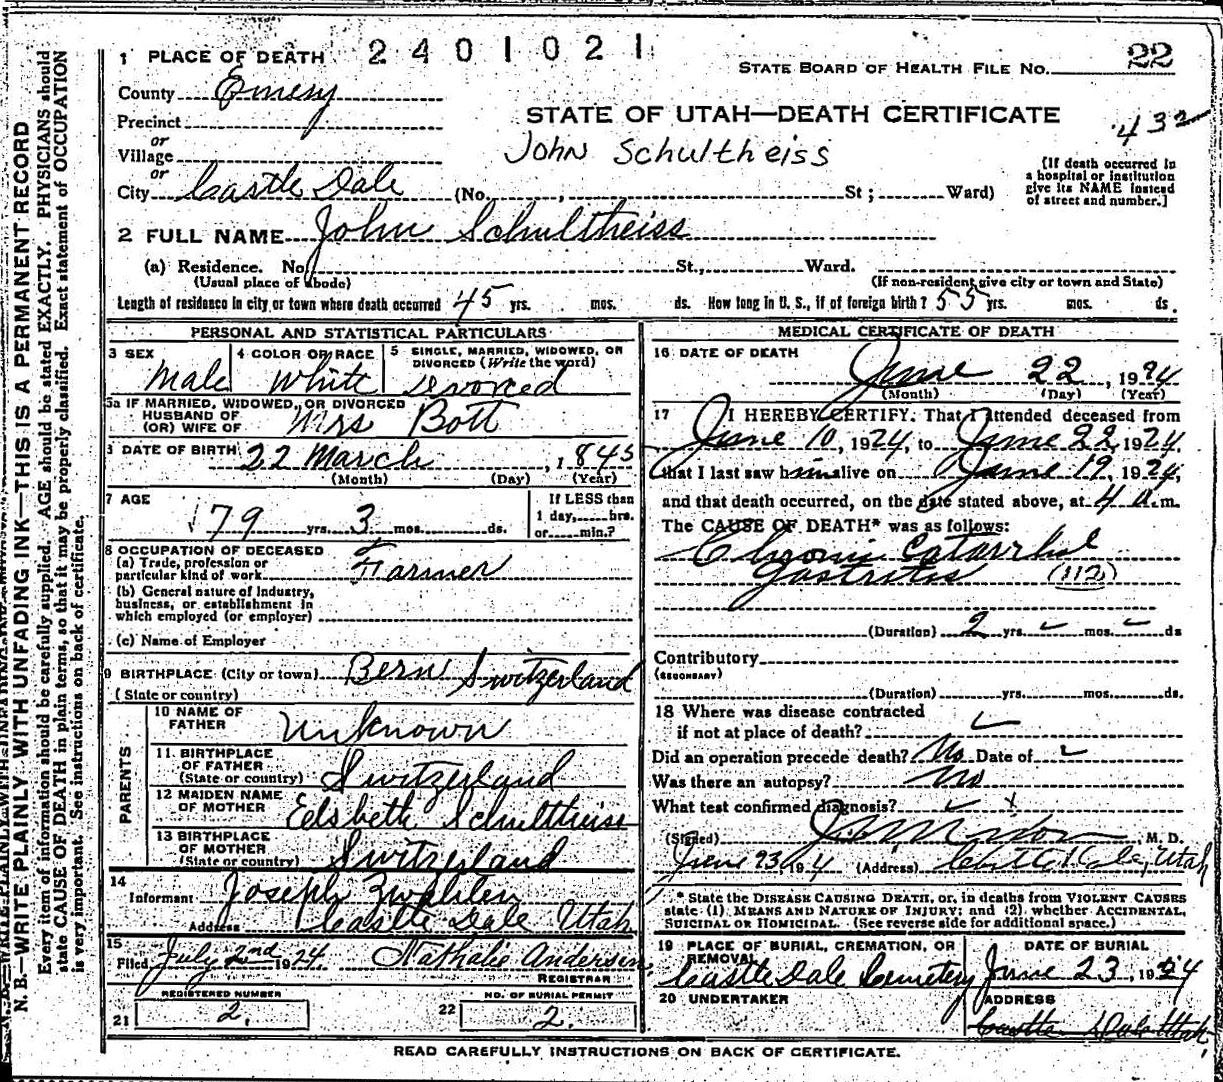 1 PLACE OF DEATH 2401021
STATE BOARD OF HEALTH FILE NO. 22
County Emery
STATE OF UTAH—DEATH CERTIFICATE
432
Precinct
or
Village
John Schultheiss
or
City Castle Dale (No. , St; Ward)
[If death occurred in
a hospital or institution
give its NAME instead
of street and number.]
2 FULL NAME John Schultheiss
(a) Residence. No. St., Ward.
(Usual place of abode) (If non-resident give city or town and State)
Length of residence in city or town where death occurred 45 yrs. mos. ds. How long in U. S., if of foreign birth? 55 yrs. mos. ds.
PERSONAL AND STATISTICAL PARTICULARS
3 SEX
Male
4 COLOR OR RACE
White
5 SINGLE, MARRIED, WIDOWED, OR
DIVORCED (Write the word)
Divorced
5a IF MARRIED, WIDOWED, OR DIVORCED
HUSBAND OF
(OR) WIFE OF Mrs Bott
6 DATE OF BIRTH 22 March , 1845
(Month) (Day) (Year)
7 AGE
79 yrs. 3 mos. ds.
If LESS than
1 day, hrs.
or min.?
8 OCCUPATION OF DECEASED
(a) Trade, profession or
particular kind of work Farmer
(b) General nature of Industry,
business, or establishment in
which employed (or employer)
(c) Name of Employer
9 BIRTHPLACE (City or town) Bern Switzerland
(State or country)
PARENTS
10 NAME OF
FATHER Unknown
11 BIRTHPLACE
OF FATHER
(State or country) Switzerland
12 MAIDEN NAME
OF MOTHER Edsbeth Schultheiss
13 BIRTHPLACE
OF MOTHER
(State or country) Switzerland
14
Informant Joseph Zwahlen
Address Castle Dale Utah
15
Filed July 2nd 1924. Nathalie Andersen,
REGISTRAR
21 REGISTERED NUMBER
2.
22 NO. OF BURIAL PERMIT
2.
MEDICAL CERTIFICATE OF DEATH
16 DATE OF DEATH
June 22, 1924
(Month) (Day) (Year)
17 I HEREBY CERTIFY. That I attended deceased from
June 10, 1924, to June 22, 1924,
that I last saw him alive on June 19, 1924,
and that death occurred, on the date stated above, at 4 a.m.
The CAUSE OF DEATH* was as follows:
Chronic Catarrhal
Gastritis (112)
(Duration) 2 yrs. mos. ds
Contributory
(SECONDARY)
(Duration) yrs. mos. ds.
18 Where was disease contracted
if not at place of death?
Did an operation precede death? No Date of
Was there an autopsy? No
What test confirmed diagnosis?
(Signed) , M. D.
June 23, 1924 (Address) Castle Dale, Utah
* State the DISEASE CAUSING DEATH, or, in deaths from VIOLENT CAUSES
state (1) MEANS AND NATURE OF INJURY; and (2) whether ACCIDENTAL,
SUICIDAL OR HOMICIDAL. (See reverse side for additional space.)
19 PLACE OF BURIAL, CREMATION, OR
REMOVAL
Castle Dale Cemetery
DATE OF BURIAL
June 23, 1924
20 UNDERTAKER
ADDRESS
Castle Dale Utah
READ CAREFULLY INSTRUCTIONS ON BACK OF CERTIFICATE.
N. B.—WRITE PLAINLY WITH UNFADING INK—THIS IS A PERMANENT RECORD
Every item of information should be carefully supplied. AGE should be stated EXACTLY. PHYSICIANS should
state CAUSE OF DEATH in plain terms, so that it may be properly classified. Exact statement of OCCUPATION
is very important. See instructions on back of certificate.